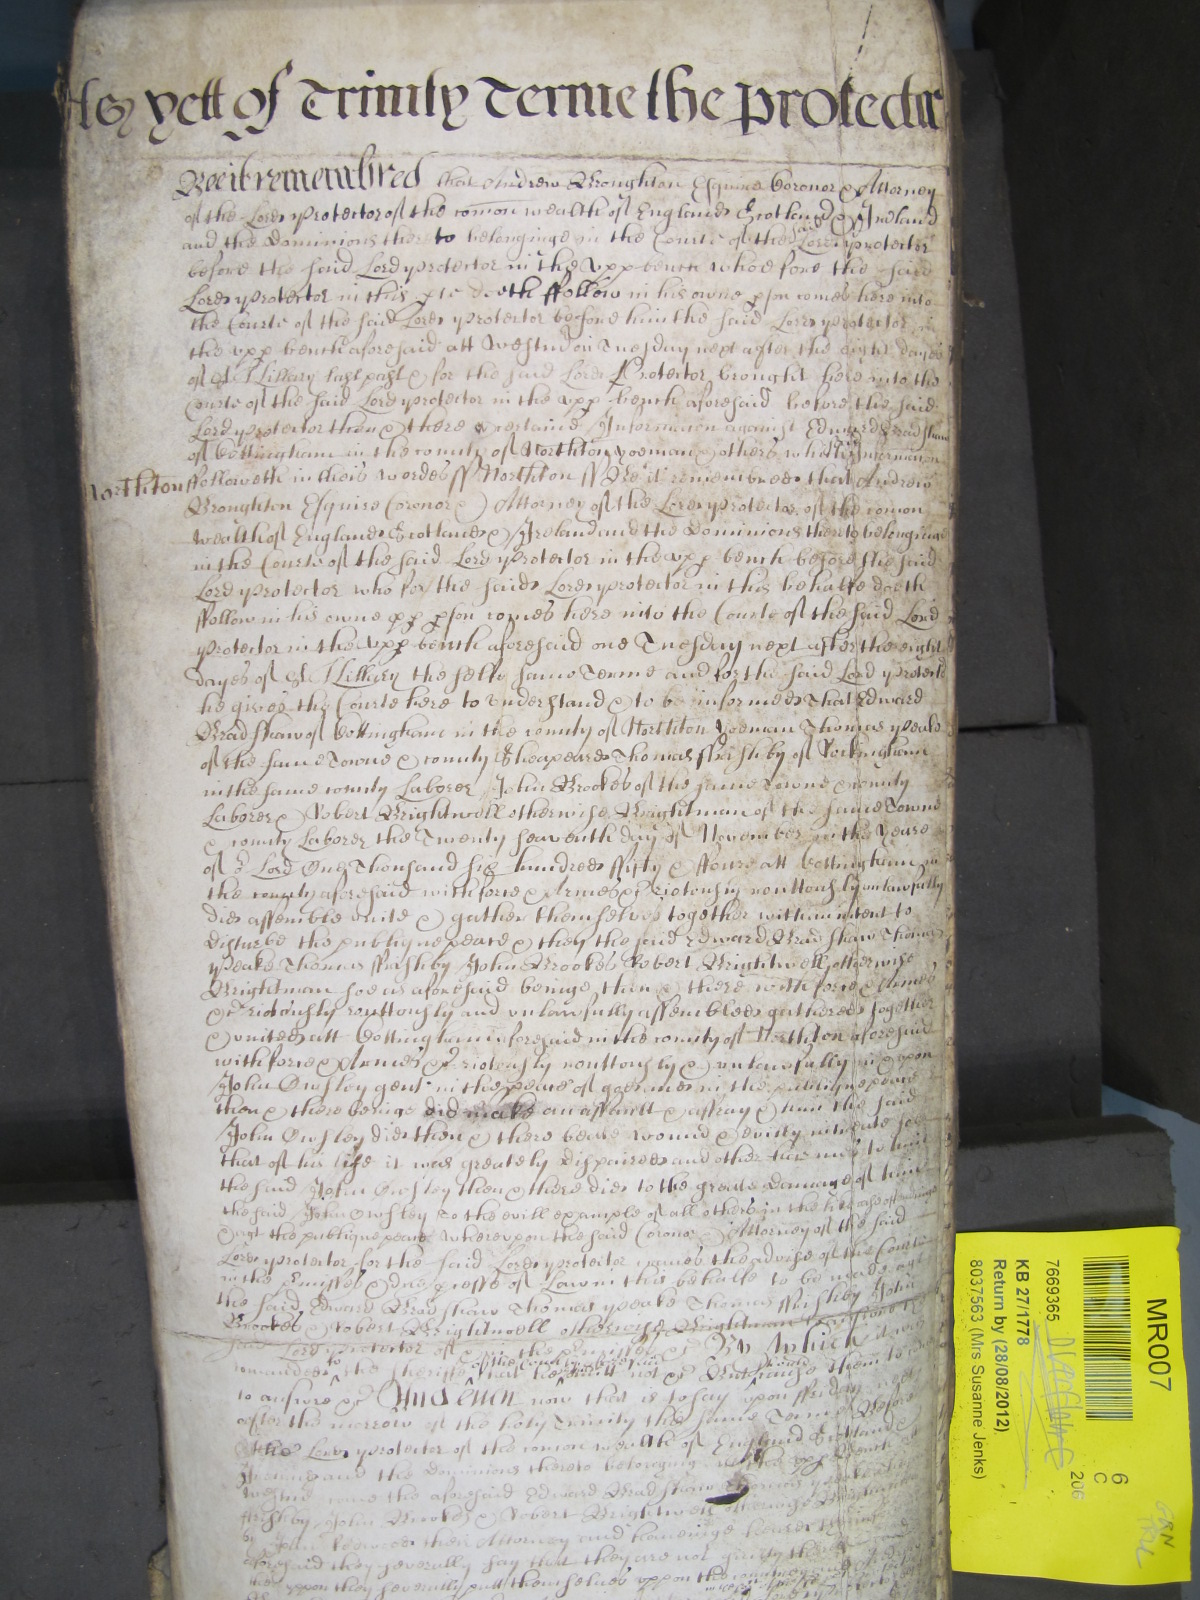 As yett of Trinity Terme the protector
Bee it remembred that Andrew Broughton Esquire Coronor & Attorney
of the Lord Protector of the comon wealth of England Scotland & Ireland
and the Dominions thereto belonginge in the Courte of the said Lord protector
before the said Lord protector in the upp bench whoe for the said
Lord Protector in this doeth ffollow in his owne pson comes here into
the Courte of the said Lord protector before him the said Lord protector in
the upp bench aforesaid att Westm on Tuesday next after the eight dayes
of St Hillary last past & for the said Lord Protector brought here into the
Courte of the said Lord protector in the upp bench aforesaid before the said
Lord protector then & there a certaine Information against Edward Bradshaw
of Cottingham in the county of Northton yeoman & others which Information
Northton ffolloweth in theis wordes ss Northton ss Be it remembred that Andrew
Broughton Esquire Coronor & Attorney of the Lord protector of the comon
wealth of England Scotland & Ireland and the Dominions thereto belonginge
in the Courte of the said Lord protector in the upp bench before the said
Lord protector who for the said Lord protector in this behalfe doeth
ffollow in his owne pp pson comes here into the Courte of the said Lord
protector in the upp bench aforesaid one Tuesday next after the eight
dayes of St Hillary the selfe same Terme and for the said Lord protector
he gives the Courte here to understand & to be informed That Edward
Bradshaw of Cottingham in the county of Northton yeoman Thomas Peake
of the same Towne & county Sheapeard Thomas ffrishby of Rockingham
in the same county Laborer John Brookes of the same Towne & county
Laborer & Robert Brightwell otherwise Brightman of the same Towne
& county Laborer the Twenty seaventh day of November in the yeare
of Lord One Thousand six hundred ffifty & ffoure att Cottingham in
the county aforesaid with force & Armes &c riotously routtously unlawfully
did assemble unite & gather themselves together with an intent to
disturbe the publique peace & they the said Edward Bradshaw Thomas
Peake Thomas ffrishby John Brookes Robert Brightwell otherwise
Brightman soe as aforesaid beinge then & there with force & Armes
&c riotously routtously and unlawfully assembled gathered together
& united att Cottingham aforesaid in the county of Northton aforesaid
with force & Armes &c riotously routtously & unlawfully in & upon
John Owsley gent in the peace of god and in the publique peace
then & there beinge did make an assault & affray & him the said
John Owsley did then & there beate wound & evilly intreate soe
that of his life it was greately dispaired and other harmes to him
the said John Owsley then & there did to the greate damage of him
the said John Owsley to the evill example of all others in the like
& agt the publique peace whereupon the said Coronor & Attorney of the said
Lord protector for the said Lord protector craves the advise of the Courte
in the pmisses & due pcesse of Law in this behalfe to be made agt
the said Edward Bradshaw Thomas Peake Thomas ffrishby John
Brookes & Robert Brightwell otherwise Brightman to answere the
said Lord protector of & in the pmisses &c By which it was
comanded to the Sheriffe of the county aforesaid that hee should not &c But cause them to come
to answere &c And now that is to say upon ffriday next
after the morrow of the holy Trinity this same Terme Before
the Lord protector of the comon wealth of England Scotland &
Ireland and the dominions thereto belonging in the upp bench at
Westm came the aforesaid Edward Bradshaw Thomas
ffrishby John Brookes & Robert Brightwell otherwise Brightman
by John their Attorney and haveinge heard
aforesaid they severally say that they are not guilty thereof
upon they severally putt themselves uppon the country
MR007
7669365
KB 27/1778
Return by (28/08/2012)
8037563 (Mrs Susanne Jenks)
6
C
206